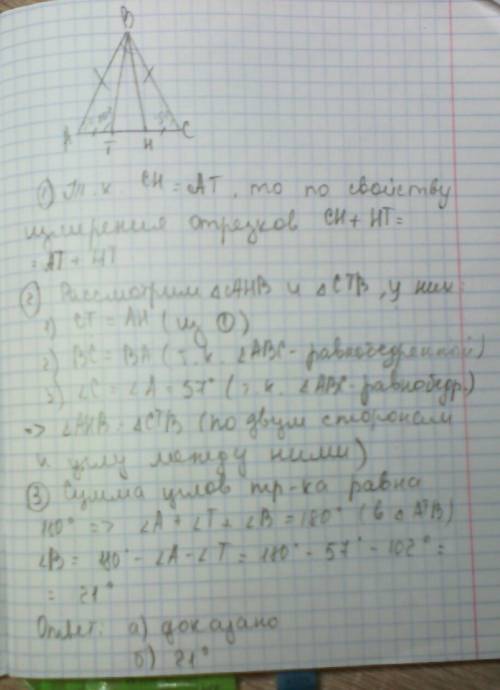 B
A T H C
① Т. к. CH = AT, то по свойству
измерения отрезков CH + HT =
= AT + HT
② Рассмотрим △AHB и △CTB, у них:
1) CT = AH (из ①)
2) BC = BA (т. к. ∠ABC - равнобедренной)
3) ∠C = ∠A = 57° (т. к. ∠ABC - равнобедр.)
=> ∠AHB = △CTB (по двум сторонам
и углу между ними)
③ Сумма углов тр-ка равна
180° => ∠A + ∠T + ∠B = 180° (в △ATB)
∠B = 180° - ∠A - ∠T = 180° - 57° - 102° =
= 21°
Ответ: а) доказано
б) 21°